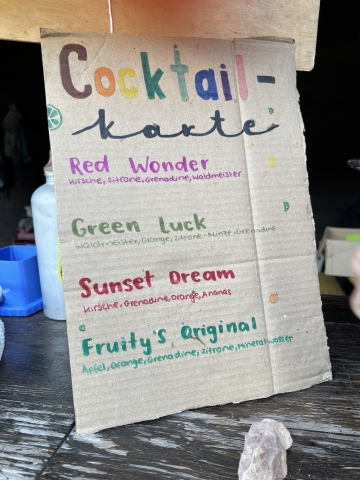 Cocktail-
karte
Red Wonder
Kirsche, Zitrone, Grenadine, Waldmeister
Green Luck
Waldmeister, Orange, Zitrone-Minze, Grenadine
Sunset Dream
Kirsche, Grenadine, Orange, Ananas
Fruity's Original
Apfel, Orange, Grenadine, Zitrone, Mineralwasser